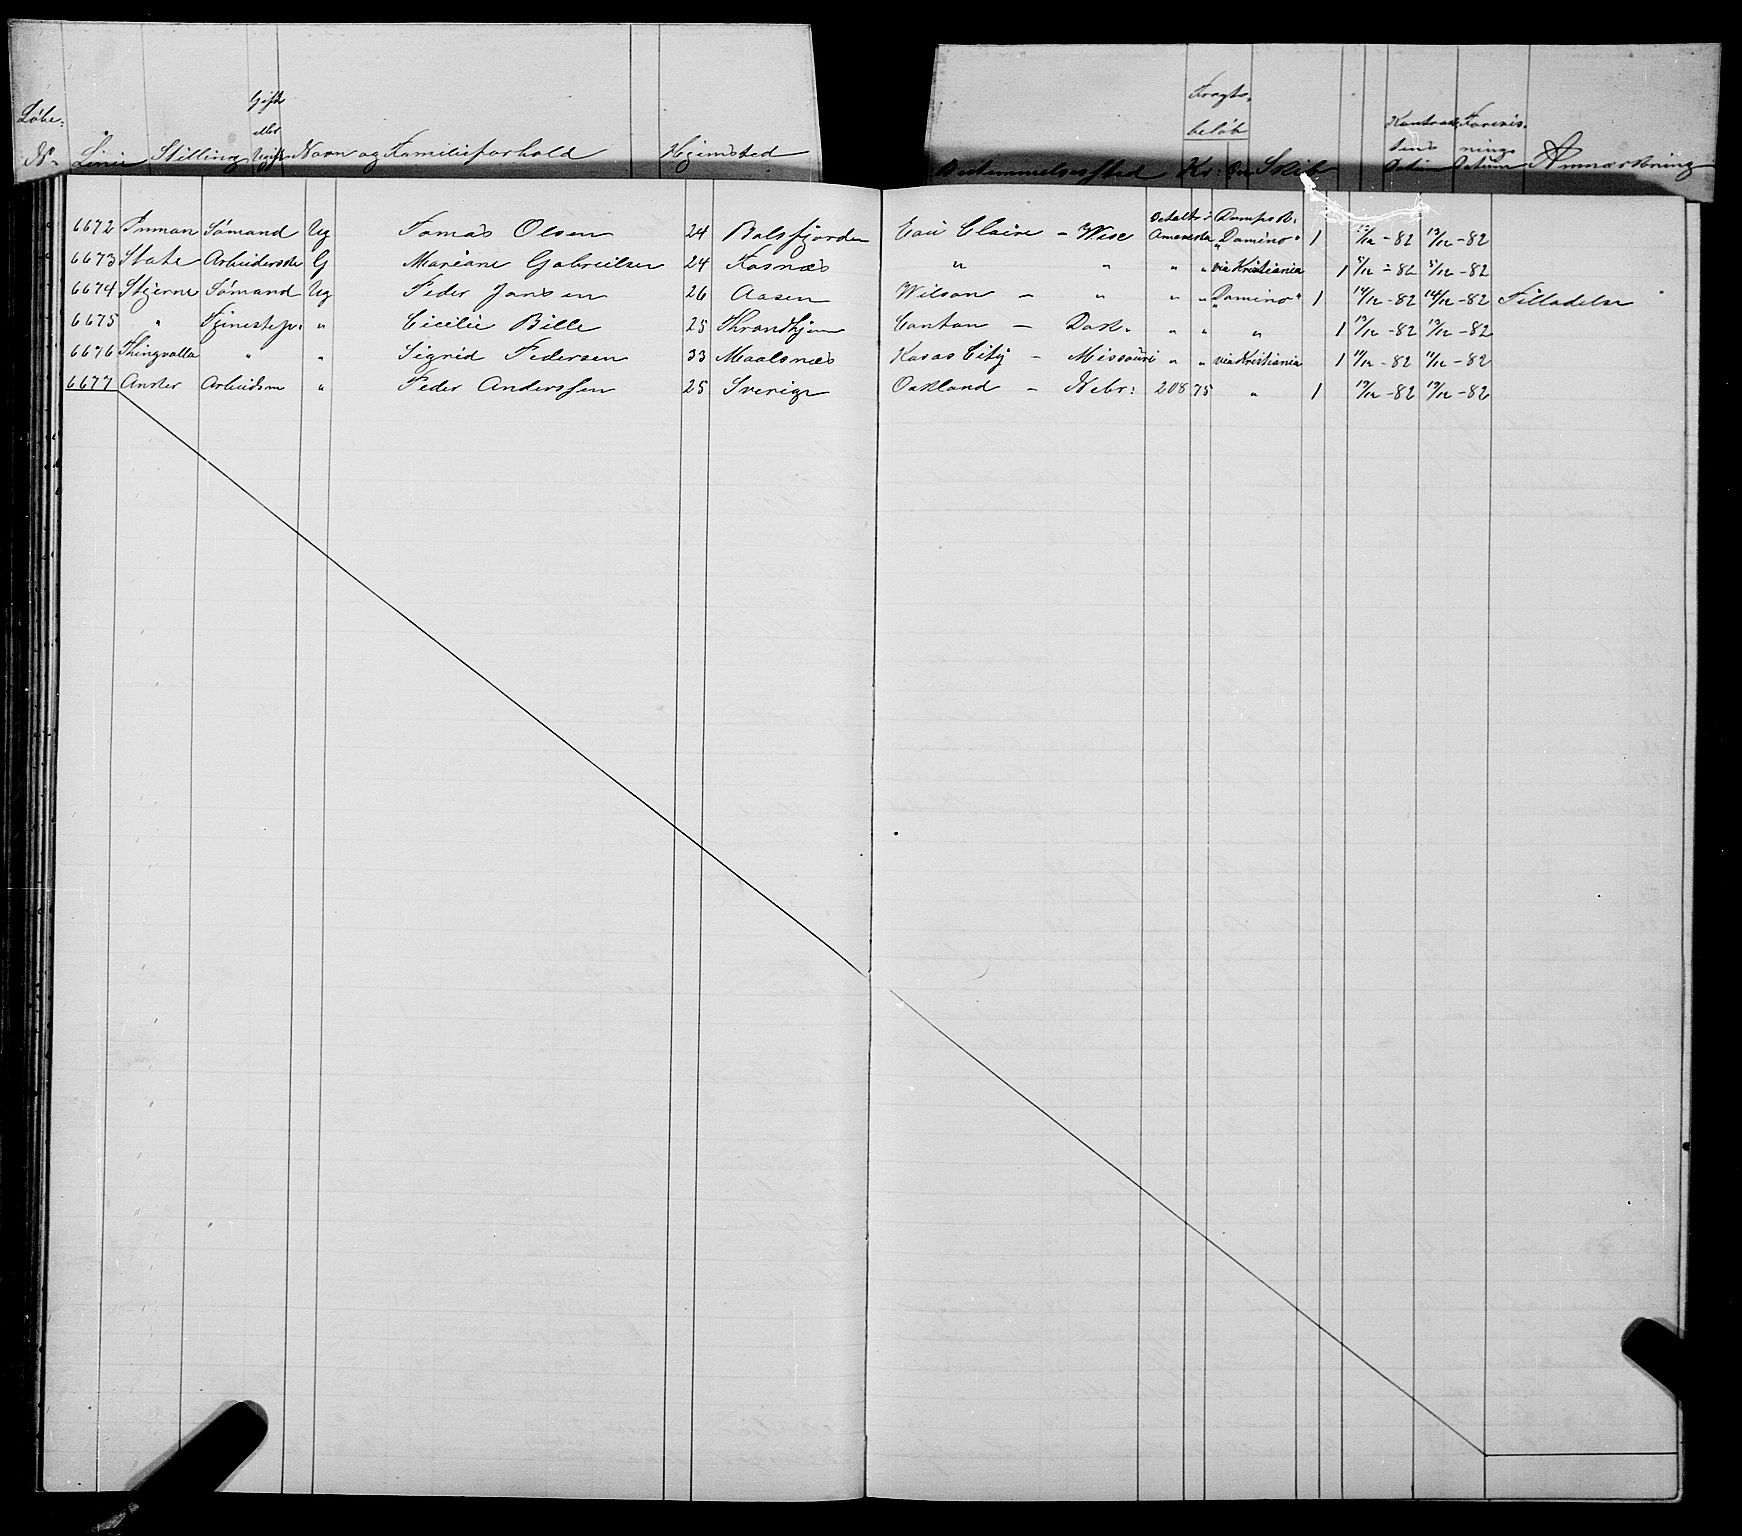 Løbe- No Linie Stilling Gift eller Ugift Navn og Familieforhold Hjemsted Bestemmelsessted Fragtbeløb Kr: Skib Datum Datum Anmærkning
6672 Inman Sømand Ug Tomas Olsen 24 Balsfjorden Eau Claire - Wisc Betalt i Amerika Dampsk. "Domino" 1 -82 13/12 -82
6673 State Arbeiderske G Mariane Gabrielsen 24 Fosnæs " " " " via Kristiania 1 -82 -82
6674 Stjerne Sømand Ug Peder Jansen 26 Aasen Wilson - " " " "Domino" 1 14/12 -82 14/12 -82 Filladelf
6675 " Tjenestep. " Cicilie Bille 25 Throndhjem Canton - Dak. " " " 1 13/12 -82 13/12 -82
6676 Thingvalla " " Sigrid Pedersen 33 Maalsnæs Kasas City - Missouri " " via Kristiania 1 -82 -82
6677 Anker Arbeidsm " Peder Anderssen 25 Sverige Oakland - Nebr: 208 75 " 1 -82 -82